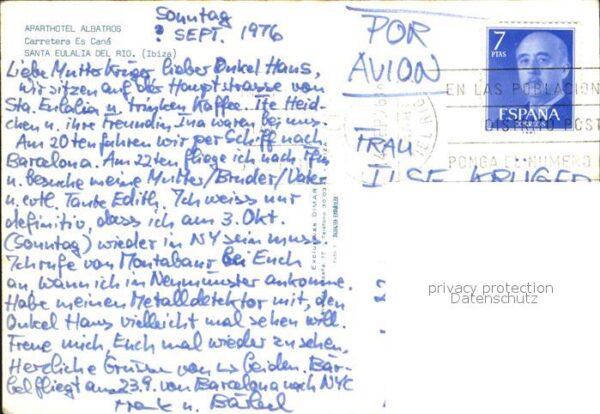 Sonntag
? SEPT. 1976
APARTHOTEL ALBATROS
Carretera Es Caná
SANTA EULALIA DEL RIO. (Ibiza)
Liebe Mutter Krüger, lieber Onkel Hans,
wir sitzen auf der Hauptstrasse von
Sta. Eulalia u. trinken Kaffee. Ite Heid-
chen u. ihre Freundin Ina waren bei uns.
Am 20ten fahren wir per Schiff nach
Barcelona. Am 22ten fliege ich nach
u. besuche meine Mutter/Bruder/Vater
u. evtl. Tante Edith. Ich weiss nur
definitiv, dass ich am 3. Okt.
(Sonntag) wieder in NY sein muss.
Ich rufe von Montabaur bei Euch
an, wann ich in Neumünster ankomme.
Habe meinen Metalldetektor mit, den
Onkel Hans vielleicht mal sehen will.
Freue mich, Euch mal wieder zu sehen,
Herzliche Grüsse von uns beiden. Bär-
bel fliegt am 23.9. von Barcelona nach NYC
Frank u. Bärbel
POR
AVION
7
PTAS
ESPAÑA
CORREOS
EN LAS POBLACION
DISTRITO POST
PONGA EL NUMERO
FRAU
ILSE KRÜGER
privacy protection
Datenschutz